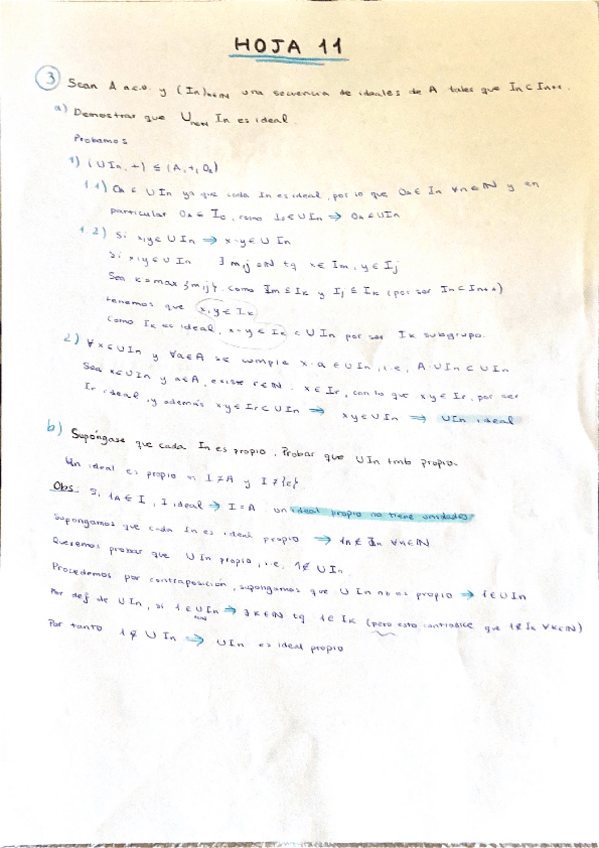 HOJA 11
③ Sean A a.c.u. y (In)n∈N una secuencia de ideales de A tales que In ⊂ In+1.
a) Demostrar que Un∈N In es ideal.
Probamos
1) (UIn, +) ≤ (A, +, 0A)
1.1) 0A ∈ UIn ya que cada In es ideal, por lo que 0A ∈ In ∀n∈N y en
particular 0A ∈ I0, como I0 ⊂ UIn → 0A ∈ UIn
1.2) Si x,y ∈ UIn → x-y ∈ UIn
Si x,y ∈ UIn ∃ m,j ∈ N tq x ∈ Im, y ∈ Ij
Sea k = max {m,j}. Como Im ⊆ Ik y Ij ⊆ Ik (por ser In ⊂ In+1)
tenemos que x,y ∈ Ik
Como Ik es ideal, x-y ∈ Ik ⊂ UIn por ser Ik subgrupo.
2) ∀x ∈ UIn y ∀a ∈ A se cumple x·a ∈ UIn, i.e, A·UIn ⊂ UIn
Sea x ∈ UIn y a ∈ A, existe r ∈ N : x ∈ Ir, con lo que xy ∈ Ir, por ser
Ir ideal, y además xy ∈ Ir ⊂ UIn → xy ∈ UIn → UIn ideal
b) Supóngase que cada In es propio. Probar que UIn tmb propio.
Un ideal es propio si I ≠ A y I ≠ {e}.
Obs. Si 1A ∈ I, I ideal → I = A un ideal propio no tiene unidades
Supongamos que cada In es ideal propio → 1A ∉ In ∀n∈N
Queremos probar que UIn propio, i.e. 1 ∉ UIn.
Procedemos por contraposición, supongamos que UIn no es propio → 1 ∈ UIn
Por def de UIn, si 1 ∈ UIn → ∃ k∈N tq 1 ∈ Ik (pero esto contradice que 1 ∉ Ik ∀k∈N)
Por tanto 1 ∉ UIn → UIn es ideal propio